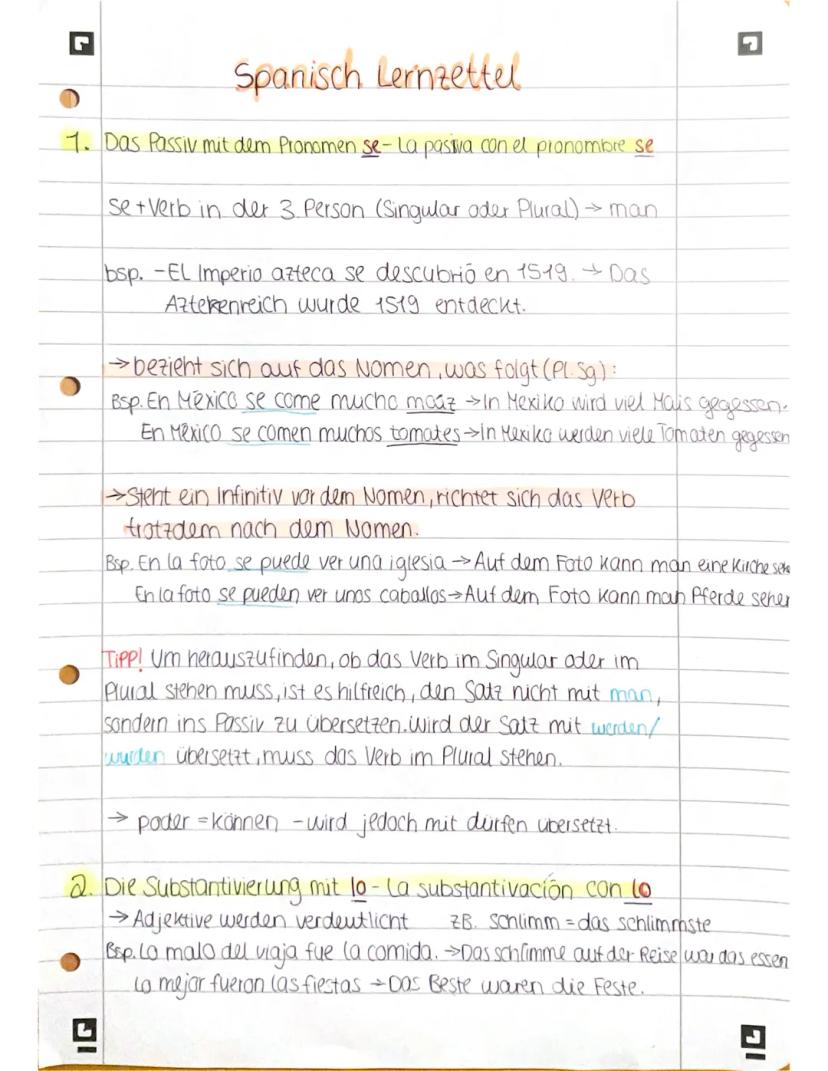 Spanisch Lernzettel
1. Das Passiv mit dem Pronomen se - La pasiva con el pronombre se
se + Verb in der 3. Person (Singular oder Plural) → man
bsp. - EL Imperio azteca se descubrió en 1519. → Das
Aztekenreich wurde 1519 entdeckt.
→ bezieht sich auf das Nomen, was folgt (Pl. Sg):
Bsp. En México se come mucho maíz → In Mexiko wird viel Mais gegessen.
En México se comen muchos tomates → In Mexiko werden viele Tomaten gegessen
→ Steht ein Infinitiv vor dem Nomen, richtet sich das Verb
trotzdem nach dem Nomen.
Bsp. En la foto se puede ver una iglesia → Auf dem Foto kann man eine Kirche
En la foto se pueden ver unos caballos → Auf dem Foto kann man Pferde sehen
TIPP! Um herauszufinden, ob das Verb im Singular oder im
Plural stehen muss, ist es hilfreich, den Satz nicht mit man,
sondern ins Passiv zu übersetzen. Wird der Satz mit werden/
wurden übersetzt, muss das Verb im Plural stehen.
→ poder = können - wird jedoch mit dürfen übersetzt.
2. Die Substantivierung mit lo - La substantivación con lo
→ Adjektive werden verdeutlicht ZB. schlimm = das schlimmste
Bsp. Lo malo del viaja fue la comida. → Das schlimme auf der Reise war das essen
Lo mejor fueron las fiestas → Das Beste waren die Feste.